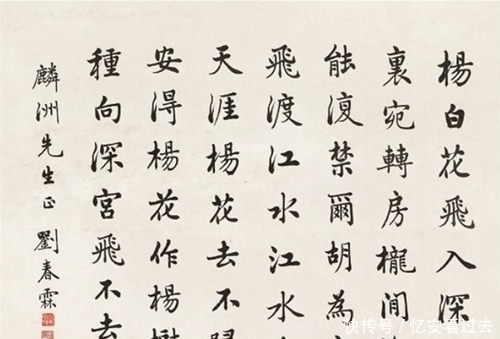 楊白花飛入深
裏宛轉房櫳間
能復禁爾胡為
飛渡江水江水
天涯楊花去不歸
安得楊花作楊樹
種向深宮飛不去
麟洲先生正 劉春霖
快传号／忆安看过去